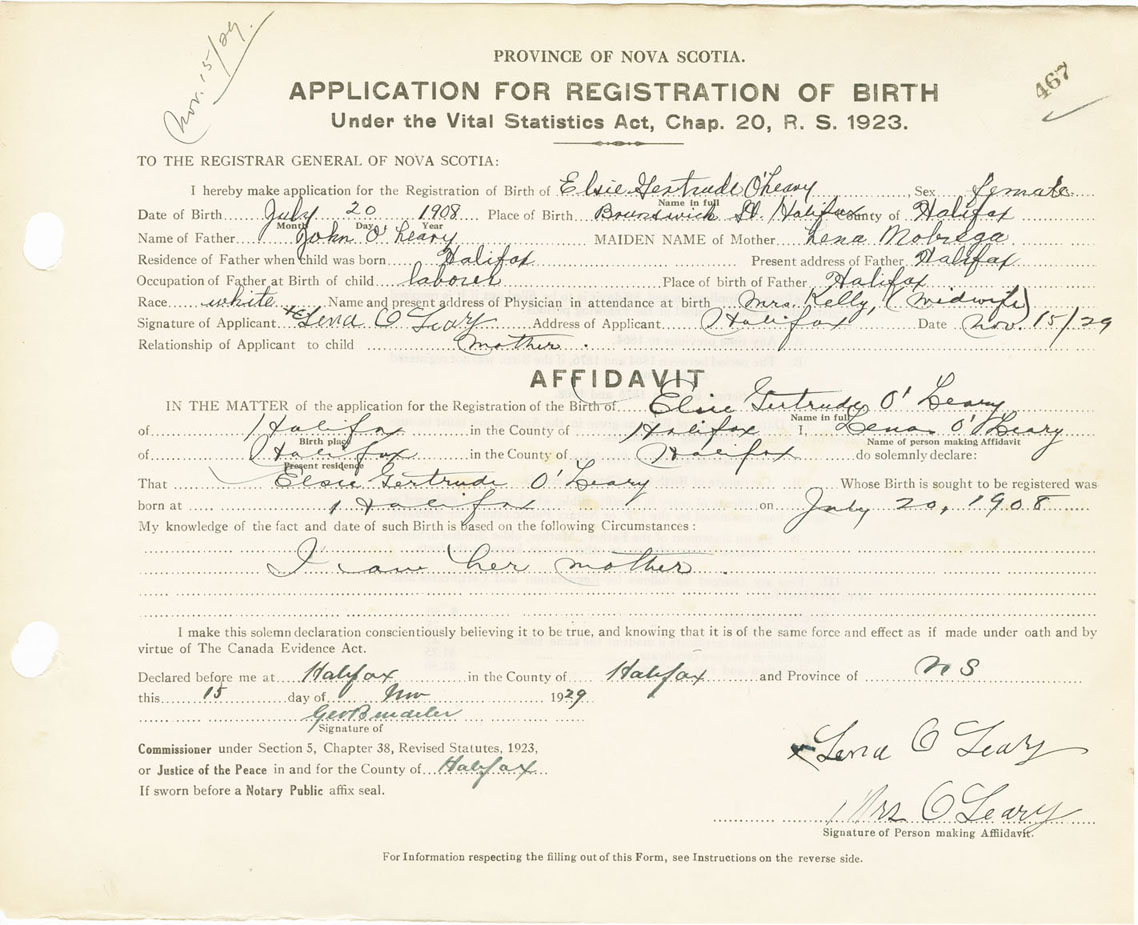 Nov. 15/29.
467
PROVINCE OF NOVA SCOTIA.
APPLICATION FOR REGISTRATION OF BIRTH
Under the Vital Statistics Act, Chap. 20, R. S. 1923.
TO THE REGISTRAR GENERAL OF NOVA SCOTIA:
I hereby make application for the Registration of Birth of Elsie Gertrude O'Leary Sex female
Name in full
Date of Birth July 20 1908 Place of Birth Brunswick St. Halifax County of Halifax
Month Day Year
Name of Father John O'Leary MAIDEN NAME of Mother Lena Nobrega
Residence of Father when child was born Halifax Present address of Father Halifax
Occupation of Father at Birth of child laborer Place of birth of Father Halifax
Race white Name and present address of Physician in attendance at birth Mrs. Kelly, (midwife)
Signature of Applicant Lena O Leary Address of Applicant Halifax Date Nov. 15/29
Relationship of Applicant to child mother.
AFFIDAVIT
IN THE MATTER of the application for the Registration of the Birth of Elsie Gertrude O'Leary
Name in full
of Halifax in the County of Halifax I, Lena O'Leary
Birth place Name of person making Affidavit
of Halifax in the County of Halifax do solemnly declare:
Present residence
That Elsie Gertrude O'Leary Whose Birth is sought to be registered was
born at Halifax on July 20, 1908
My knowledge of the fact and date of such Birth is based on the following Circumstances:
I am her mother.
I make this solemn declaration conscientiously believing it to be true, and knowing that it is of the same force and effect as if made under oath and by
virtue of The Canada Evidence Act.
Declared before me at Halifax in the County of Halifax and Province of N S
this 15 day of Nov 1929
Signature of
Commissioner under Section 5, Chapter 38, Revised Statutes, 1923,
or Justice of the Peace in and for the County of Halifax
If sworn before a Notary Public affix seal.
x Lena O Leary
Mrs O Leary
Signature of Person making Affidavit.
For Information respecting the filling out of this Form, see Instructions on the reverse side.